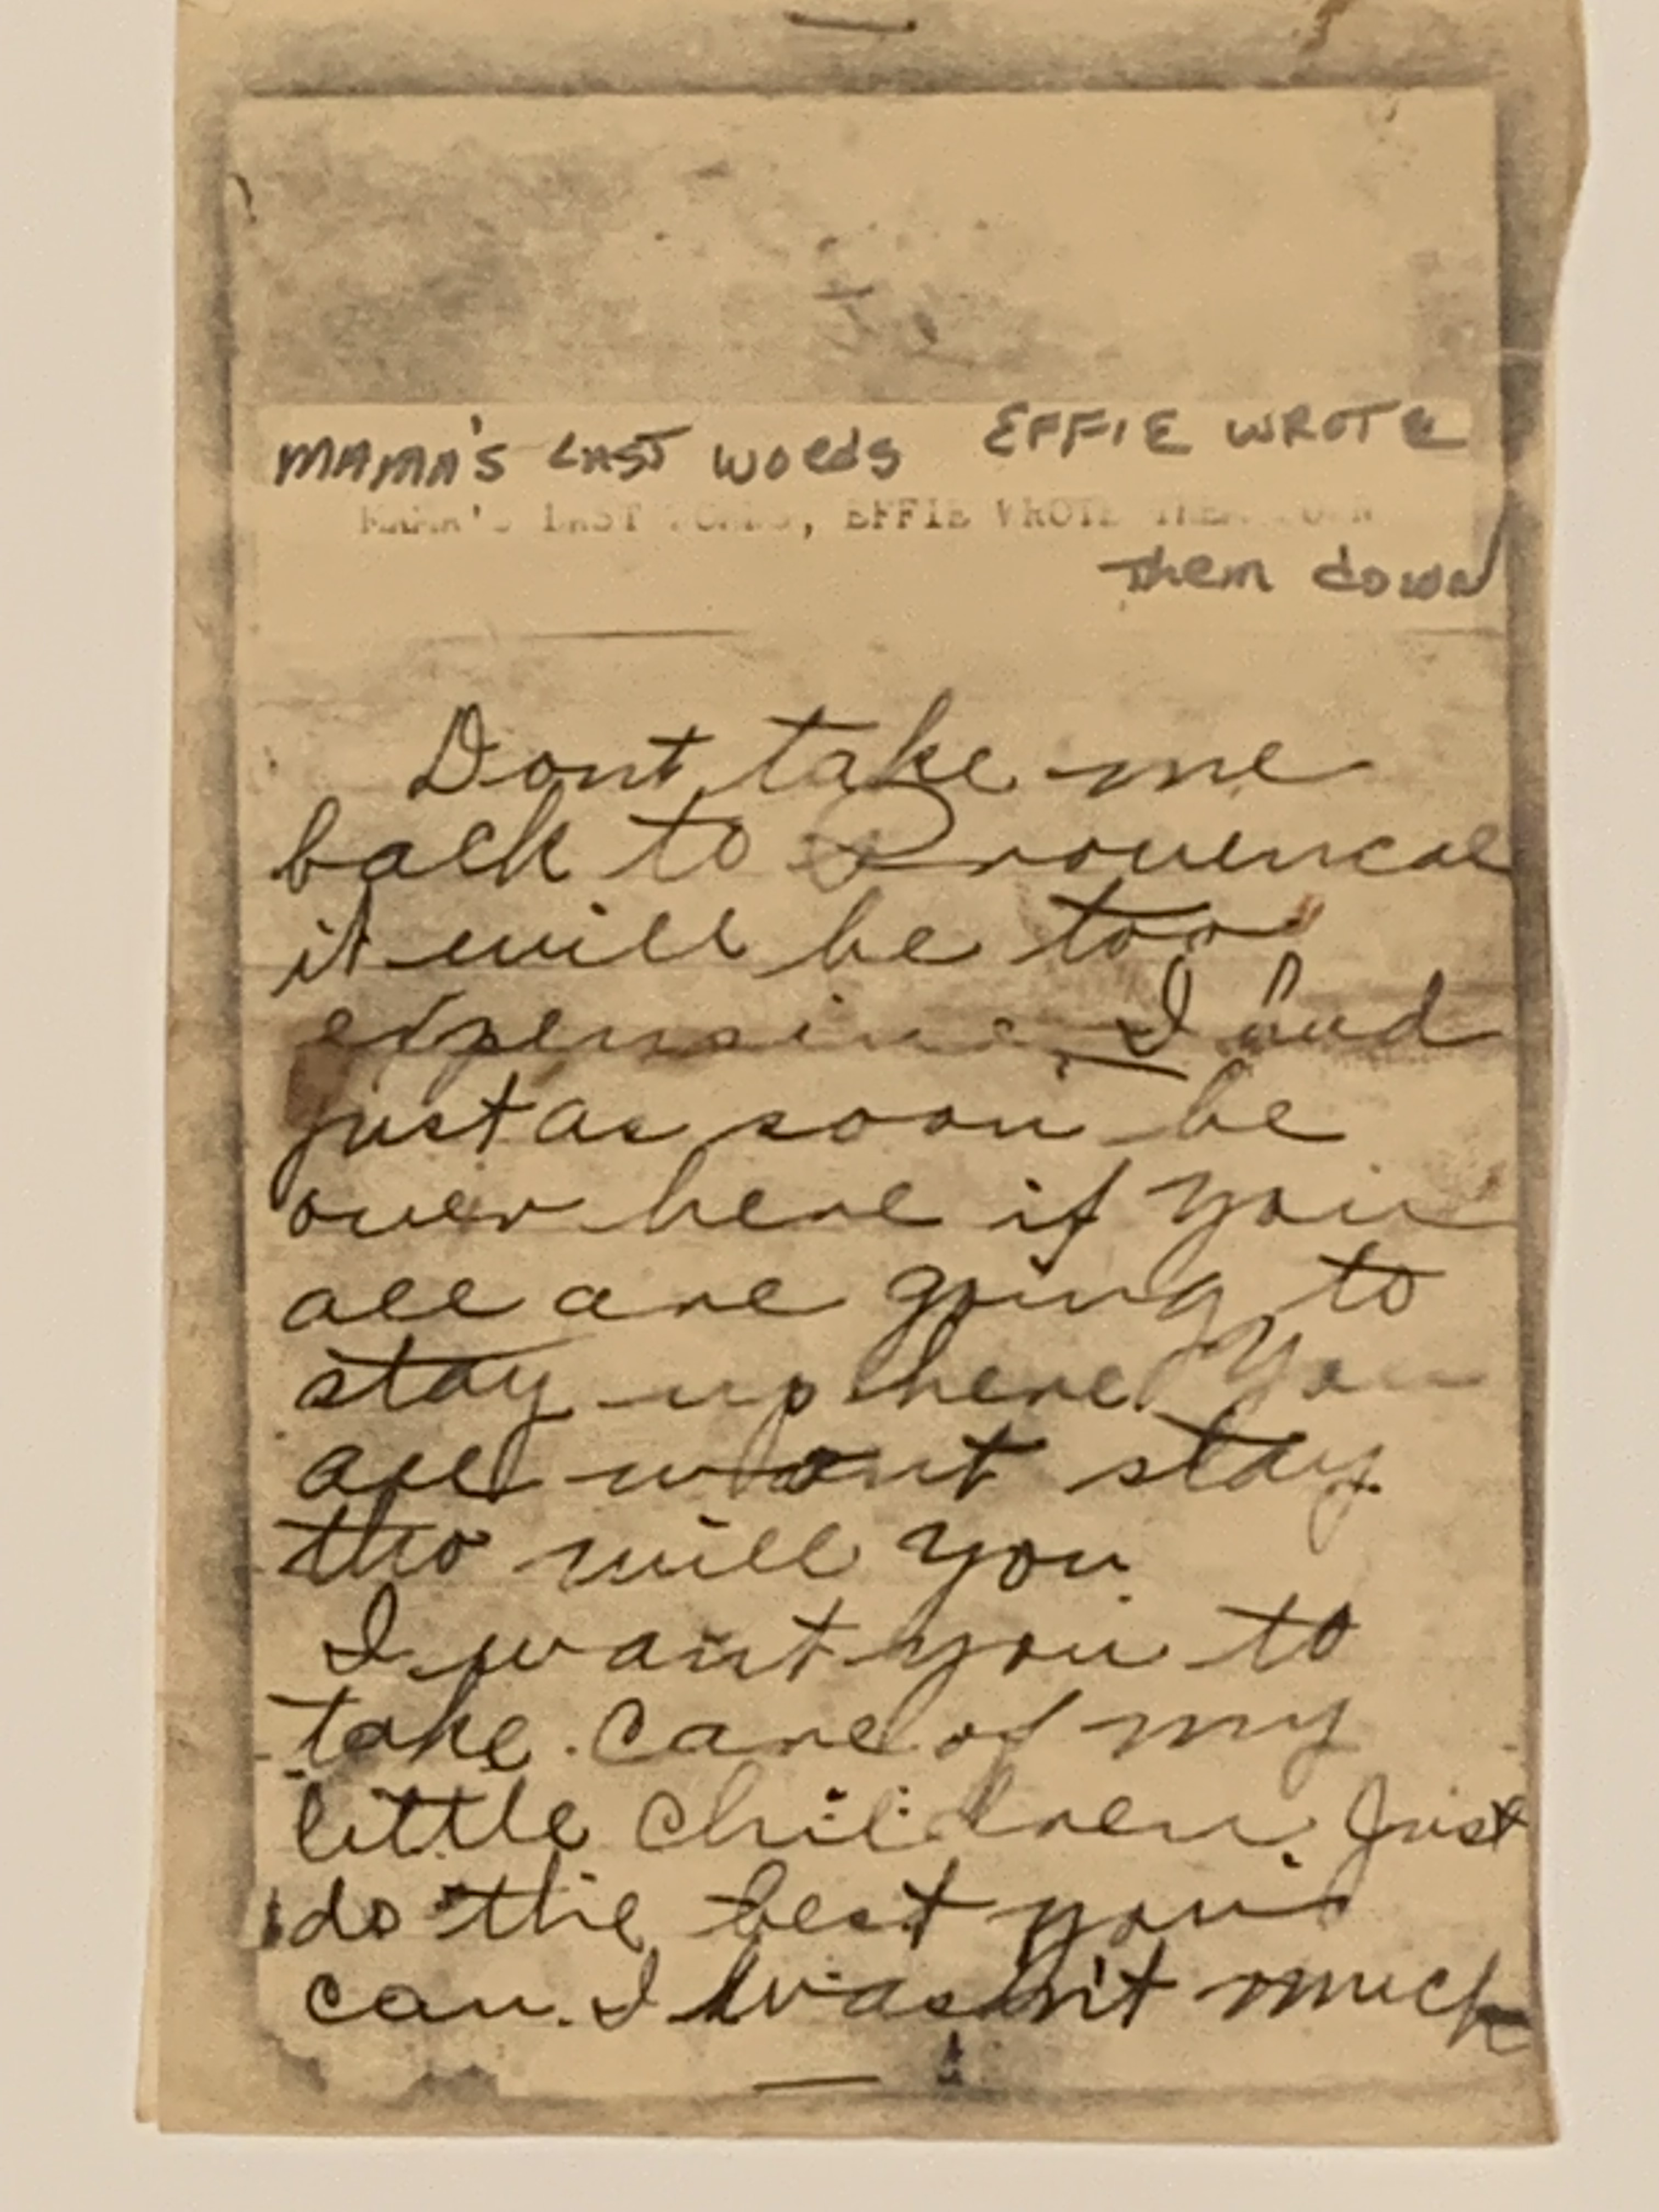 MAMA'S LAST WORDS EFFIE WROTE
MAMA'S LAST WORDS, EFFIE WROTE THEM DOWN
Them down
Dont take me
back to Provencal
it will be too
expensive. I had
just as soon be
over here if you
all are going to
stay up here you
all wont stay
tho will you
I want you to
take care of my
little children. Just
do the best you
can. I wasn't much